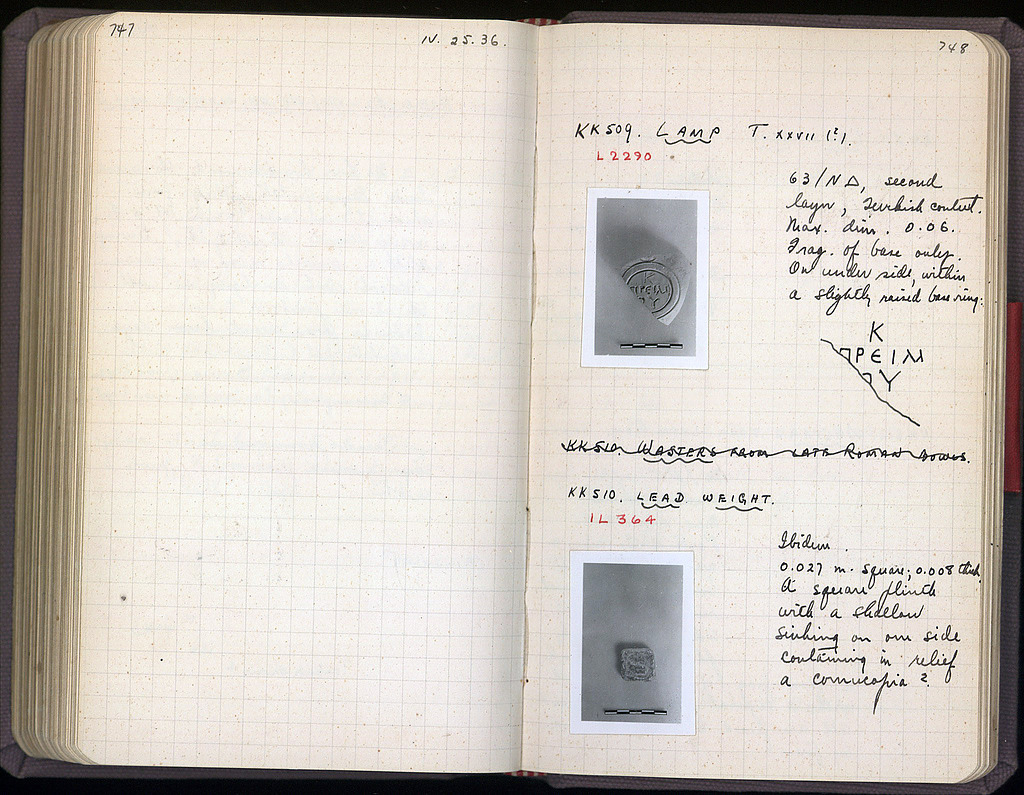 747
IV. 25. 36.
748
KK 509. LAMP T. XXVII (?).
L 2290
63/ΝΔ, second
layer, Turkish context.
Max. dim. 0.06.
Frag. of base only.
On under side, within
a slightly raised base ring:
Κ
ΠΡΕΙΜ
ΟΥ
Κ
ΠΡΕΙΜ
ΟΥ
KK 510. WASTERS FROM LATE ROMAN BOWLS.
KK 510. LEAD WEIGHT.
IL 364
Ibidem.
0.027 m. square; 0.008 thick.
A square plinth
with a shallow
sinking on one side
containing in relief
a cornucopia?